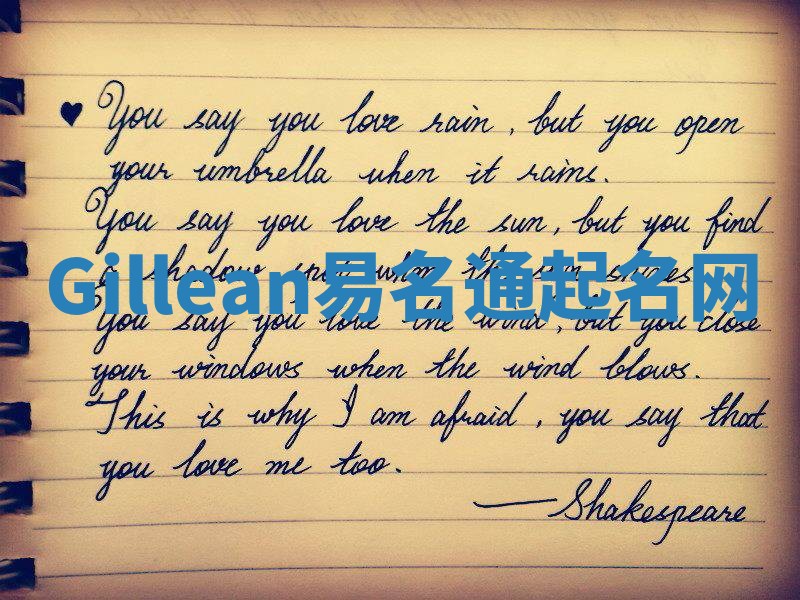 ♥ You say you love rain, but you open
your umbrella when it rains.
You say you love the sun, but you find
a shadow spot when the sun shines
Gillean易名通起名网
You say you love the wind, but you close
your windows when the wind blows.
This is why I am afraid, you say that
you love me too.
—Shakespeare